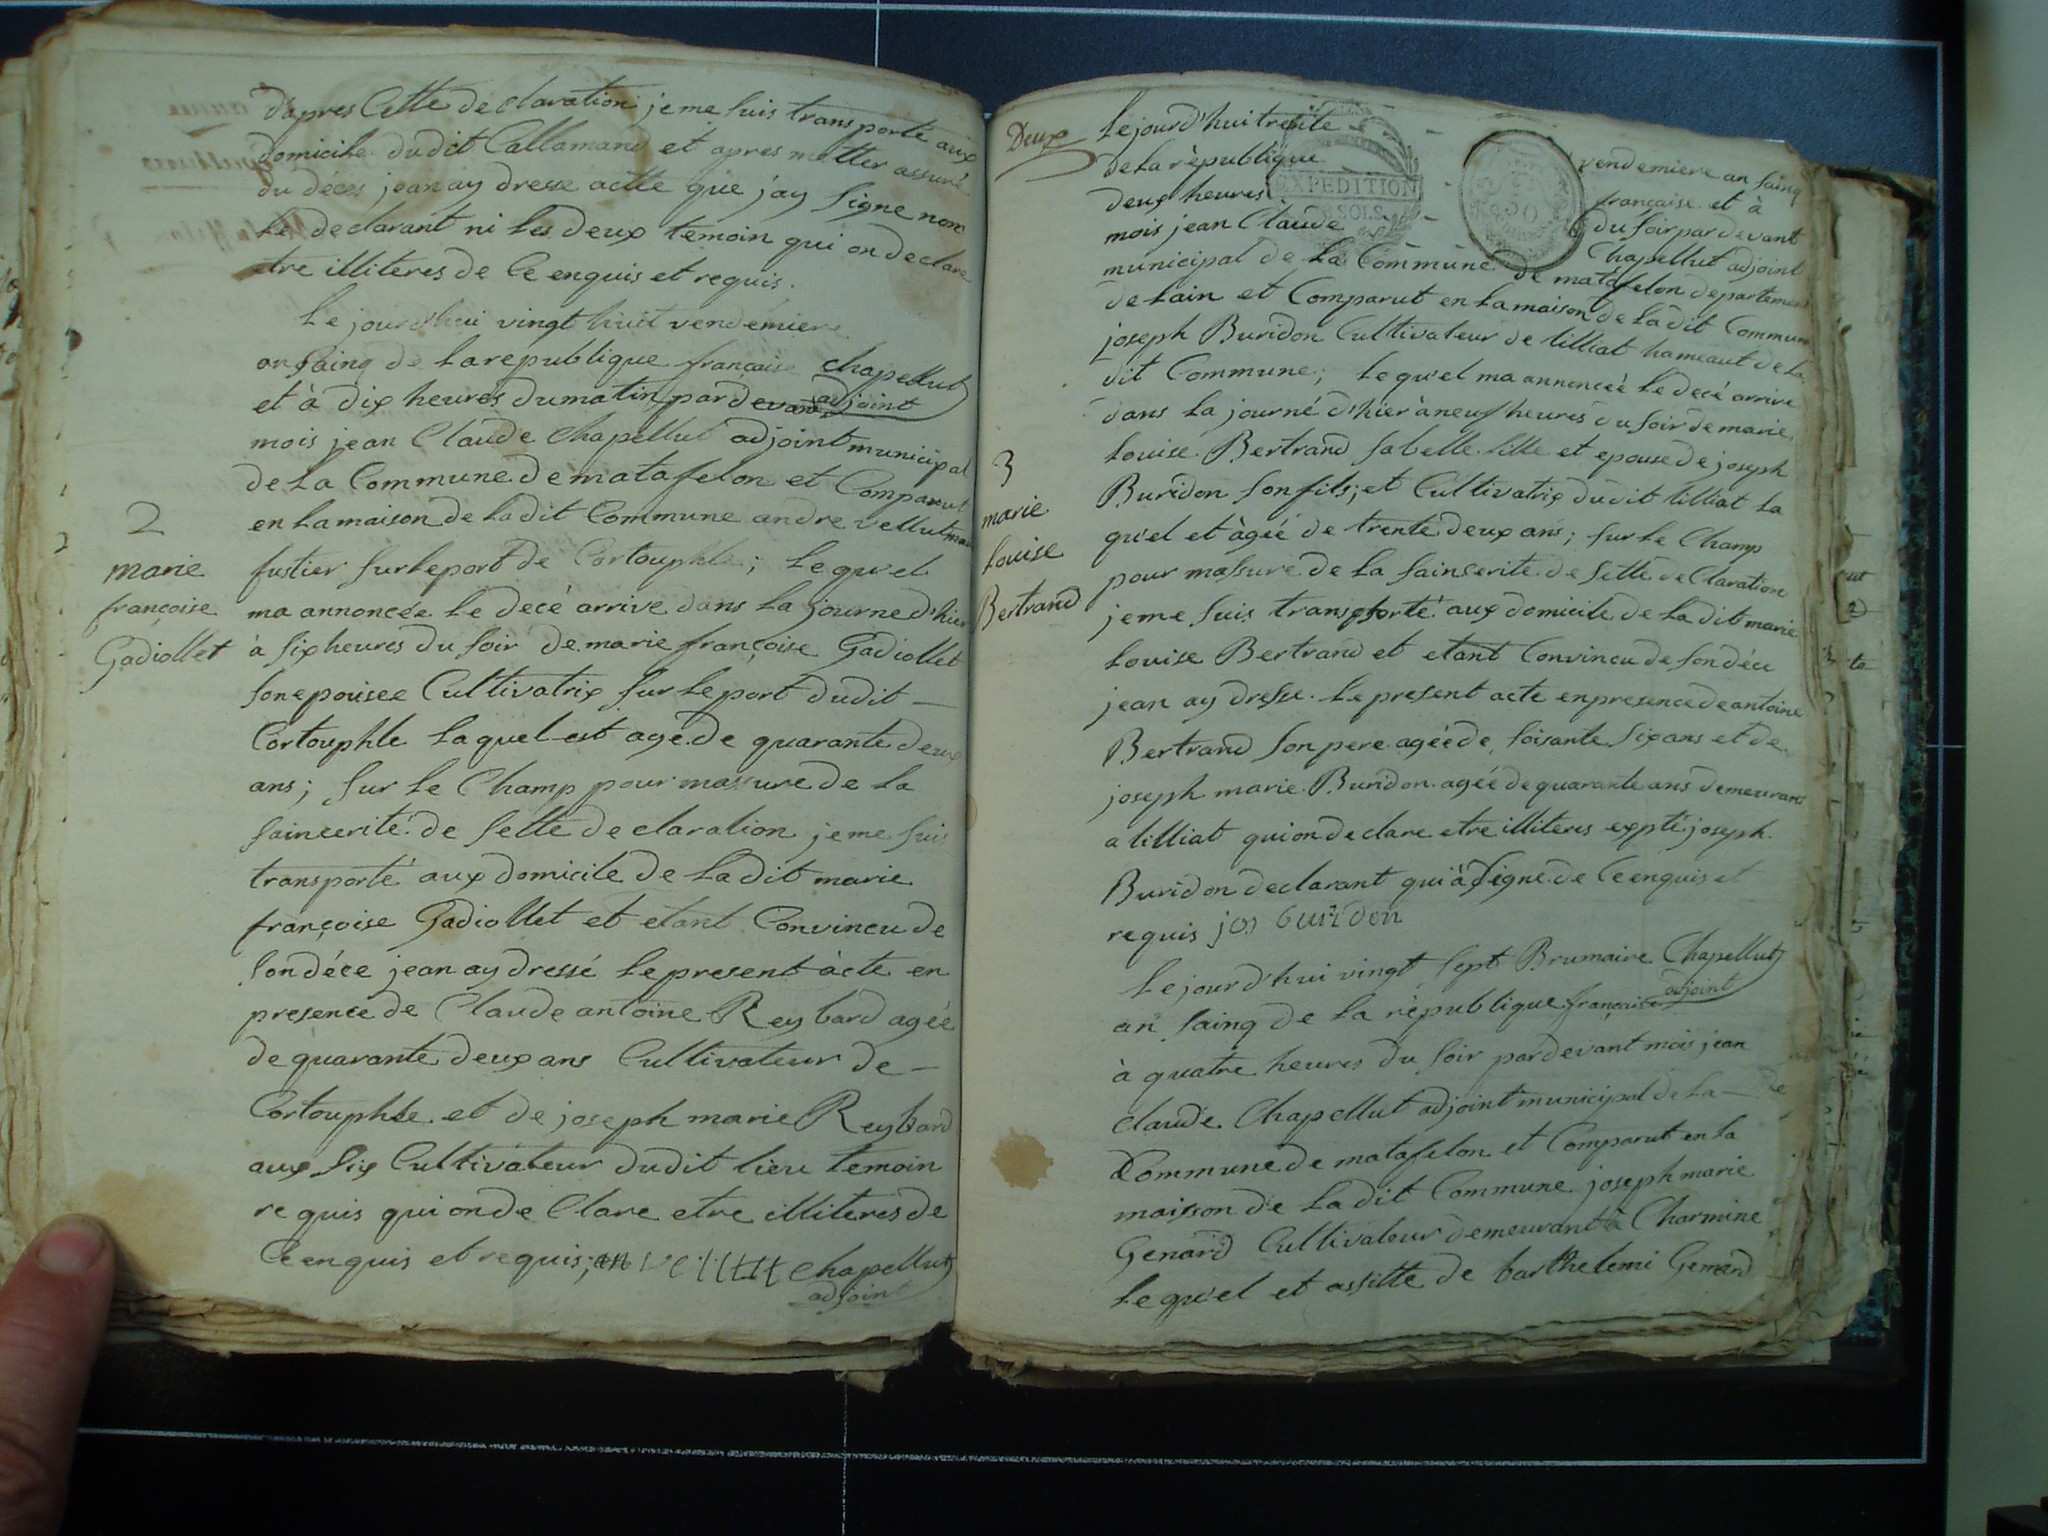 d'apres Cette declaration je me suis transporté aux
domicile dudit Callamand et apres metter assuré
du déces jean ay dresse actte que j'ay signe non
le declarant ni les deux temoin qui on declare
etre illiteres de Ce enquis et requis.
Le jourd'hui vingt huit vendemiere
an sainq de la republique françaice chapellut
et à dix heures du matin par devant adjoint
mois jean Claude chapellut adjoint municipal
de La Commune de matafelon et Comparut
en la maison de ladit Commune andre vellut
fustier sur le port de Cortouphle; Le quel
ma annoncée Le decé arrive dans la journe d'hier
à six heures du soir de marie françoise Gadiollet
son epousee Cultivatrix sur le port dudit
Cortouphle laquel est age de quarante deux
ans; sur le Champ pour massure de la
saincerité de sette declaration je me suis
transporté aux domicile de ladit marie
françoise Gadiollet et etant Convincu de
son déce jean ay dressé le present àcte en
presence de Claude antoine Reybard agée
de quarante deux ans Cultivateur de
Cortouphle et de joseph marie Reybard
aux six Cultivateur dudit lieu temoin
requis qui on de Clare etre illiteres de
Ce enquis et requis; an vellut chapellut
adjoint
2
marie
françoise
Gadiollet
Deux
Le jourd'hui trente vendemiere an sainq
de la rèpublique française et à
deux heures du soir par devant
mois jean Claude Chapellut adjoint
EXPEDITION
SOLS
municipal de La Commune de matafelon departement
de Lain et Comparut en la maison de ladit Commune
joseph Buridon Cultivateur de lilliat hameaut de la
dit Commune; lequel ma annoncéé le decé arrive
dans la journé d'hier à neuf heures du soir de marie
Louise Bertrand sa belle fille et epouse de joseph
Buridon son fils; et Cultivatrix dudit lilliat la
quel et àgéé de trente deux ans; sur le Champ
pour massure de la saincerite de sette declaration
je me suis transporté aux domicile de ladit marie
Louise Bertrand et etant Convincu de son déce
jean ay dresse le present acte en presence de antoine
Bertrand son pere agéé de soisante six ans et de
joseph marie Buridon agéé de quarante ans demeurant
a lilliat qui on declare etre illiteres expté joseph
Buridon declarant qui à signé de Ce enquis et
requis jos buridon
3
marie
Louise
Bertrand
Le jourd'hui vingt sept Brumaire Chapellut
adjoint
an sainq de la rèpublique française
à quatre heures du soir par devant mois jean
Claude Chapellut adjoint municipal de la
Commune de matafelon et Comparut en la
maison de ladit Commune joseph marie
Genard Cultivateur demeurant à Charmine
le quel et assitte de barthelemi Genard